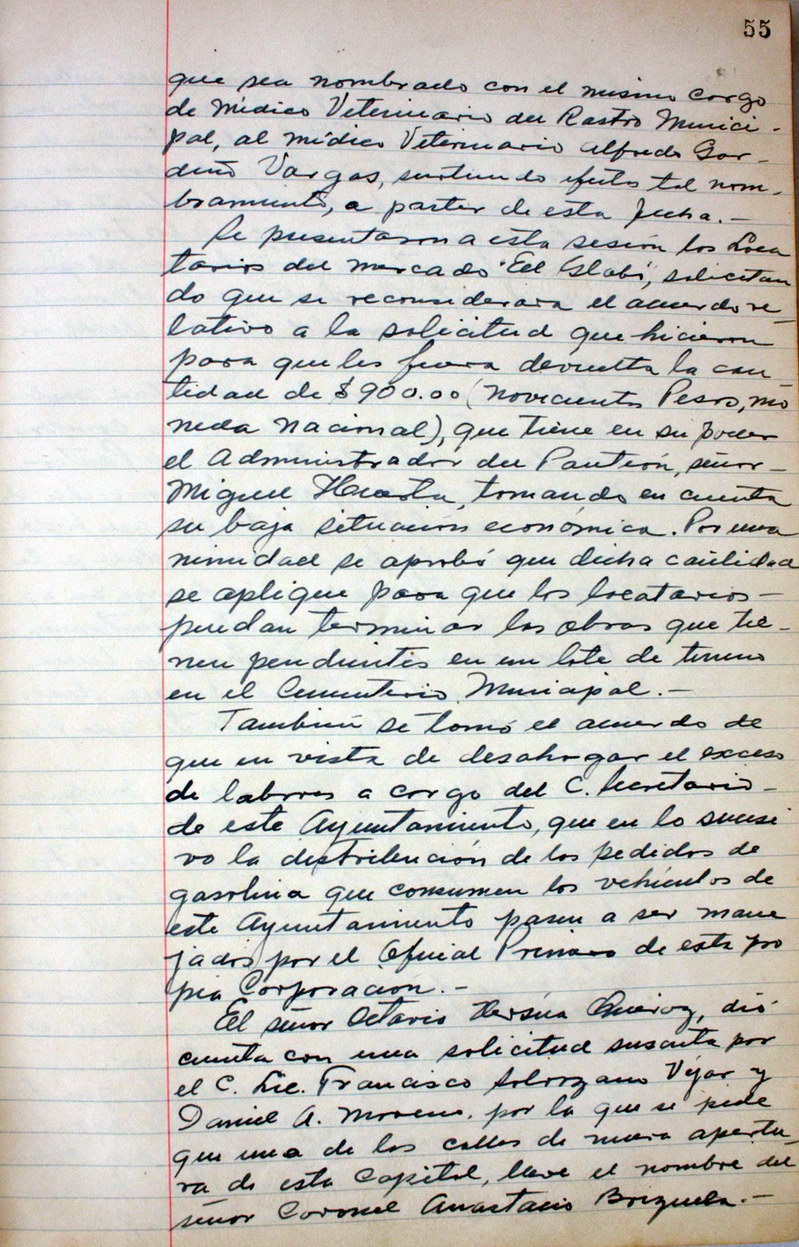 55
que sea nombrado con el mismo cargo
de Médico Veterinario del Rastro Munici-
pal, al médico Veterinario Alfredo Gor-
diño Vargas, surtiendo efecto tal nom-
bramiento, a partir de esta fecha.-
Se presentaron a esta sesión los Loca
tarios del mercado "El Globo", solicitan
do que se reconsiderara el acuerdo re-
lativo a la solicitud que hicieron
para que les fuera devuelta la can
tidad de $900.00 (novecientos Pesos, mo
neda nacional), que tiene en su poder
el Administrador del Panteón, señor-
Miguel Huerta, tomando en cuenta
su baja situación económica. Por una
nimidad se aprobó que dicha cantidad
se aplique para que los locatarios-
puedan terminar las obras que tie-
nen pendientes en un lote de terreno
en el Cementerio Municipal.-
También se tomó el acuerdo de
que en vista de desahogar el exceso
de labores a cargo del C. Secretario-
de este Ayuntamiento, que en lo sucesi
vo la distribución de los pedidos de
gasolina que consumen los vehículos de
este Ayuntamiento pasen a ser mane
jados por el Oficial Primero de esta pro
pia Corporación.-
El señor Octavio dió
cuenta con una solicitud suscrita por
el C. Lic. Francisco Solorzano Véjar y
Daniel A. Moreno, por la que se pide
que una de las calles de nueva apertu-
ra de esta Capital, lleve el nombre del
señor Coronel Anastacio Brizuela.-